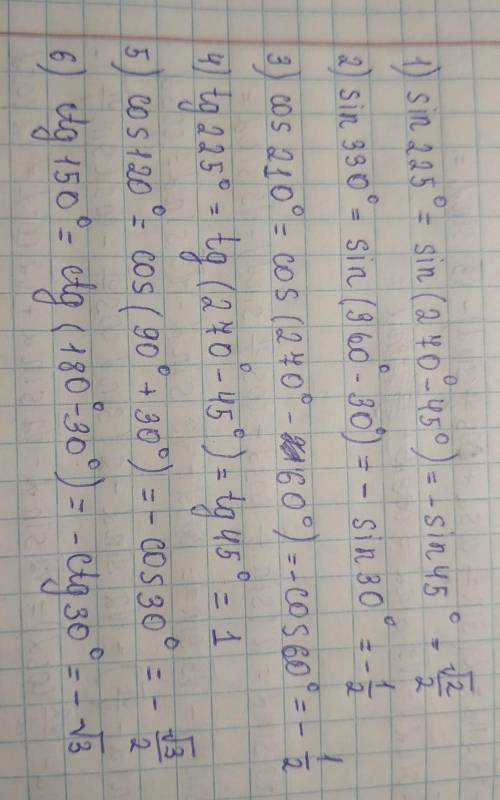 1) sin 225° = sin (270° - 45°) = - sin 45° = √2/2
2) sin 330° = sin (360° - 30°) = - sin 30° = - 1/2
3) cos 210° = cos (270° - 60°) = - cos 60° = - 1/2
4) tg 225° = tg (270° - 45°) = tg 45° = 1
5) cos 120° = cos (90° + 30°) = - cos 30° = - √3/2
6) ctg 150° = ctg (180° - 30°) = - ctg 30° = - √3